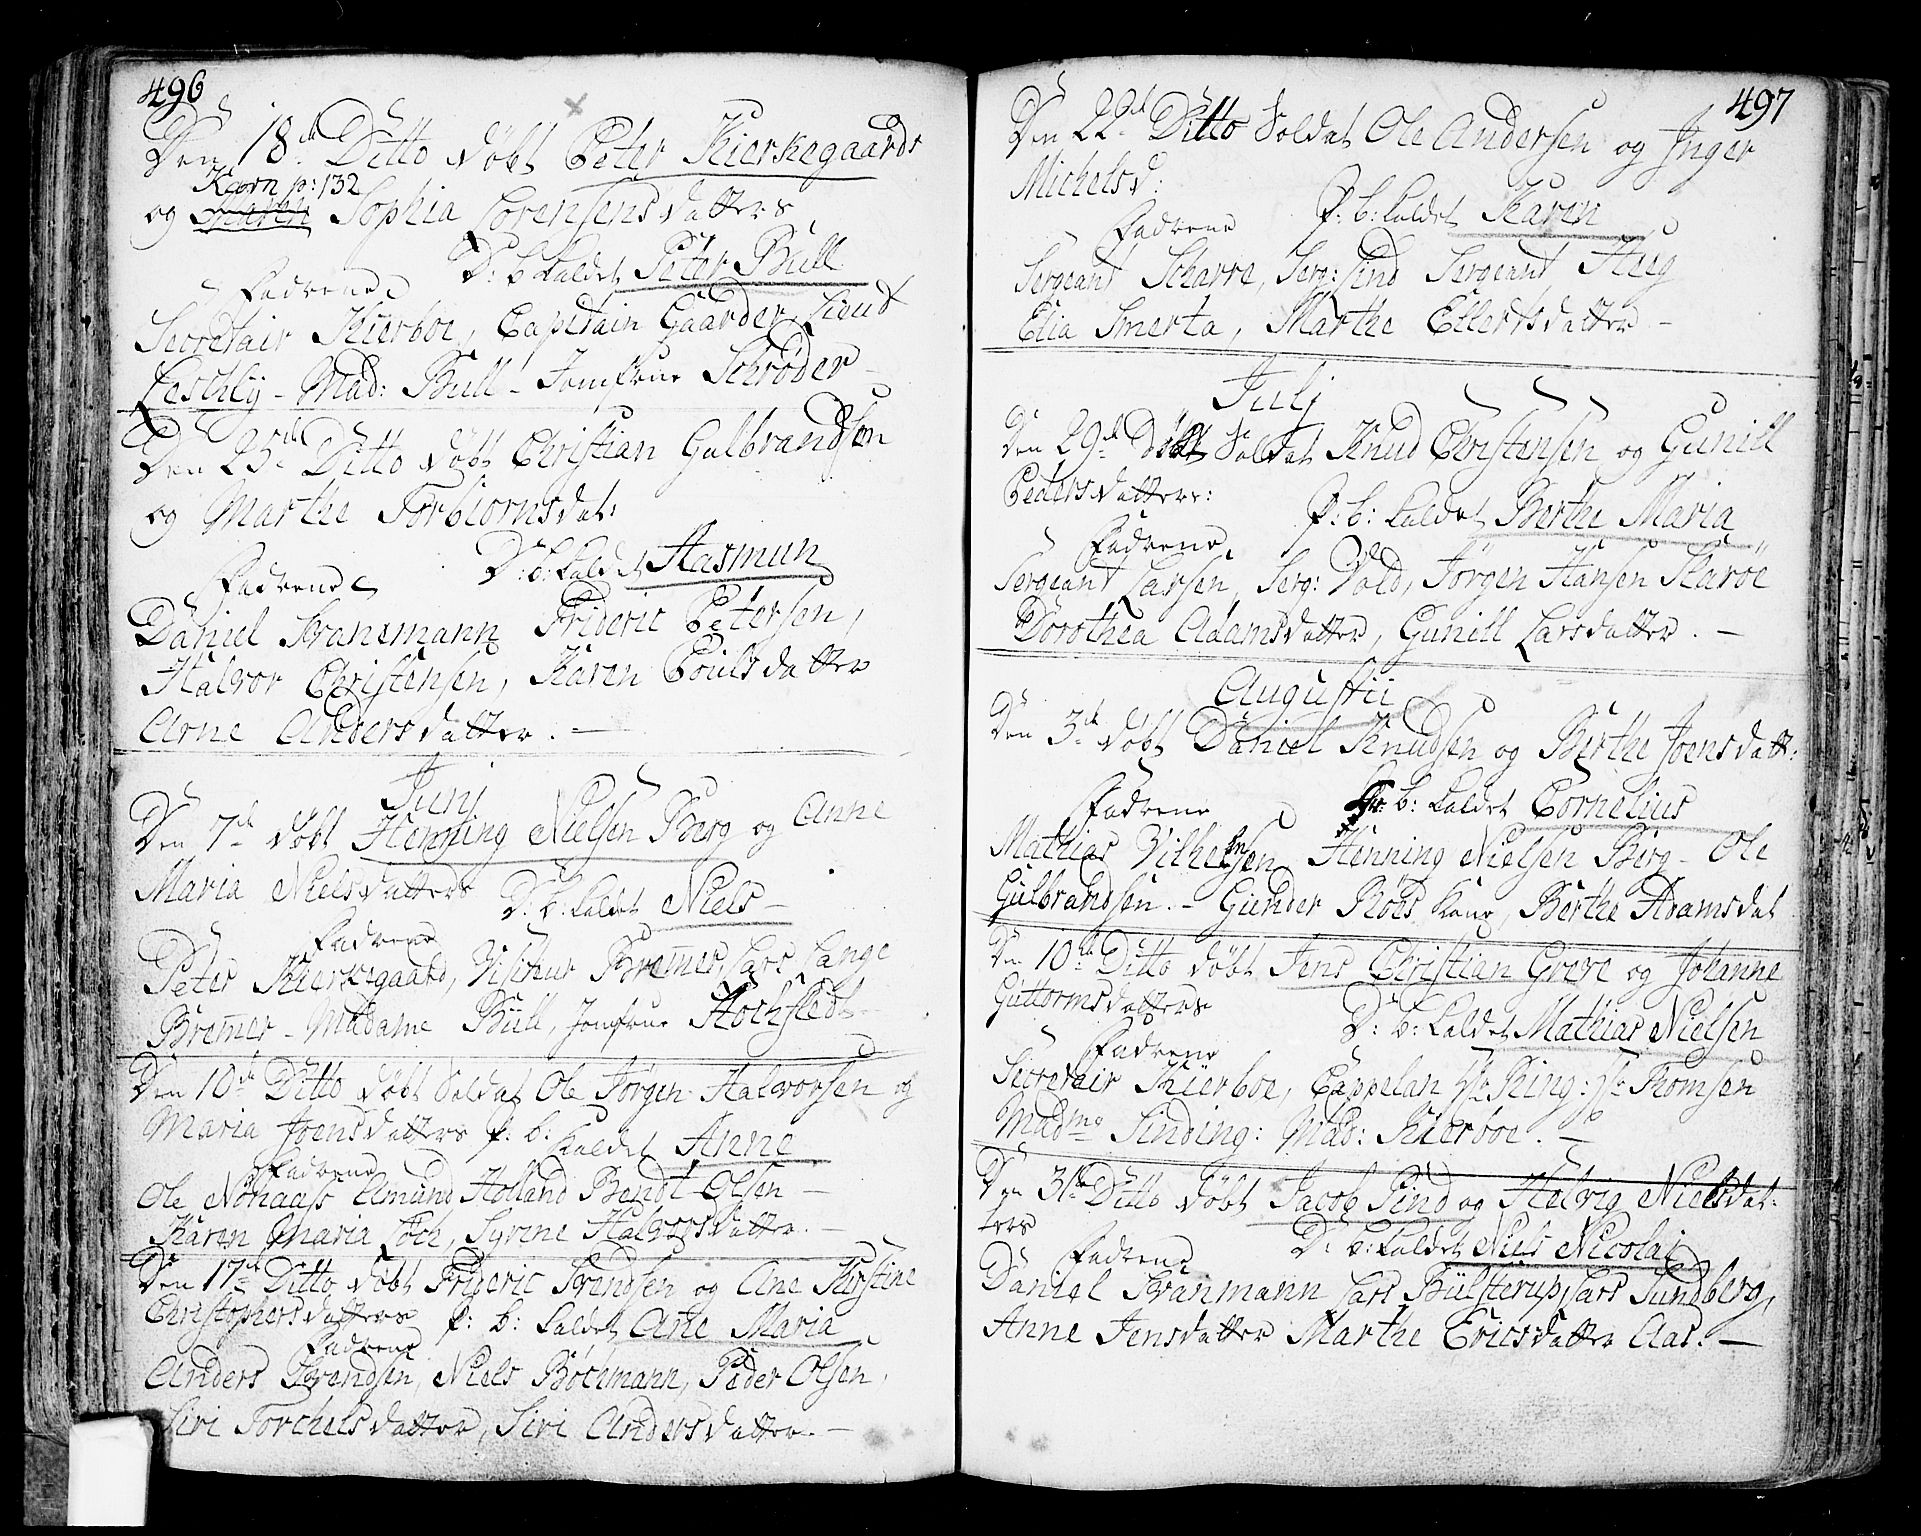 496
Den 18de Ditto döbt Peter Kierkegaards
Karn p: 132
og Maren Sophia Lorensens datters
D: b: kaldet Peter Bull
Fadrene
Secretair Kierboe, Capitain Gaarder, Lieut
Leschly - Mad: Bull - Jomfrue Schrøder -
Den 25de Ditto döbt Christian Gulbrandsen
og Marthe Torbiornsdat:
D: b: kaldet Aasmun
Fadrene
Daniel Franemann Frideric Petersen,
Halvor Christensen, Karen Poulsdatter
Arne Andersdatter. -
Junj
Den 7de döbt Henning Nielsen Berg og Anne
Maria Nielsdatters D: b: kaldet Niels -
Fadrene
Peter Kierkegaard, Visiteur Bremer, Lars Lange
Bremer - Madame Bull, Jomfrue Hochstedt -
Den 10de Ditto döbt Soldat Ole Jörgen Halvorsen og
Maria Joensdatters P: b: kaldet Anne
Fadrene
Ole Nöhaass Amund Holland Bendt Olsen -
Karen Maria Töch, Syrine Halvorsdatter. -
Den 17de Ditto döbt Frideric Svendsen og Ane Kirstine
Christophersdatters P: b: kaldet Ane Maria
Fadrene
Anders Svendsen, Niels Böchmann, Peder Olsen,
Siri Torchelsdatter, Siri Andersdatter. -
497
Den 22de Ditto Soldat Ole Andersen og Inger
Michelsd:
P: b: kaldet Karen
Fadrene
Sergeant Scharre, Serg: Lind Sergeant Hug
Elia Smerta, Marthe Ellertsdatter -
Julj
Den 29de Döbt Soldat Knud Christensen og Gunill
Pedersdatters:
P: b: kaldet Berthe Maria
Fadrene
Sergeant Larsen, Serg: Vold, Jörgen Hansen Skaröe
Dorothea Adamsdatter, Gunill Larsdatter. -
Augustii
Den 3de döbt Daniel Knudsen og Berthe Joensdatt:
b: kaldet Cornelius
Fadrene
Mathias Vilhelmsen, Henning Nielsen Berg - Ole
Gulbrandsen. - Gunder Röeds Kone, Berthe Adamsdat
Den 10de Ditto döbt Jens Christian Greve og Johanne
Guttormsdatters
D: b: kaldet Mathias Nielsen
Fadrene
Secretair Kierboe, Cappelan Hr Ring: Hr Thomsen
Madme Sinding: Mad: Kierboe. -
Den 31te Ditto döbt Jacob Lind og Helvig Nielsdat-
ters
D: b: kaldet Niels Nicolai
Fadrene
Daniel Franmann Lars Bülsterup, Lars Sundberg,
Anne Jensdatter Marthe Ericsdatter Aas. -